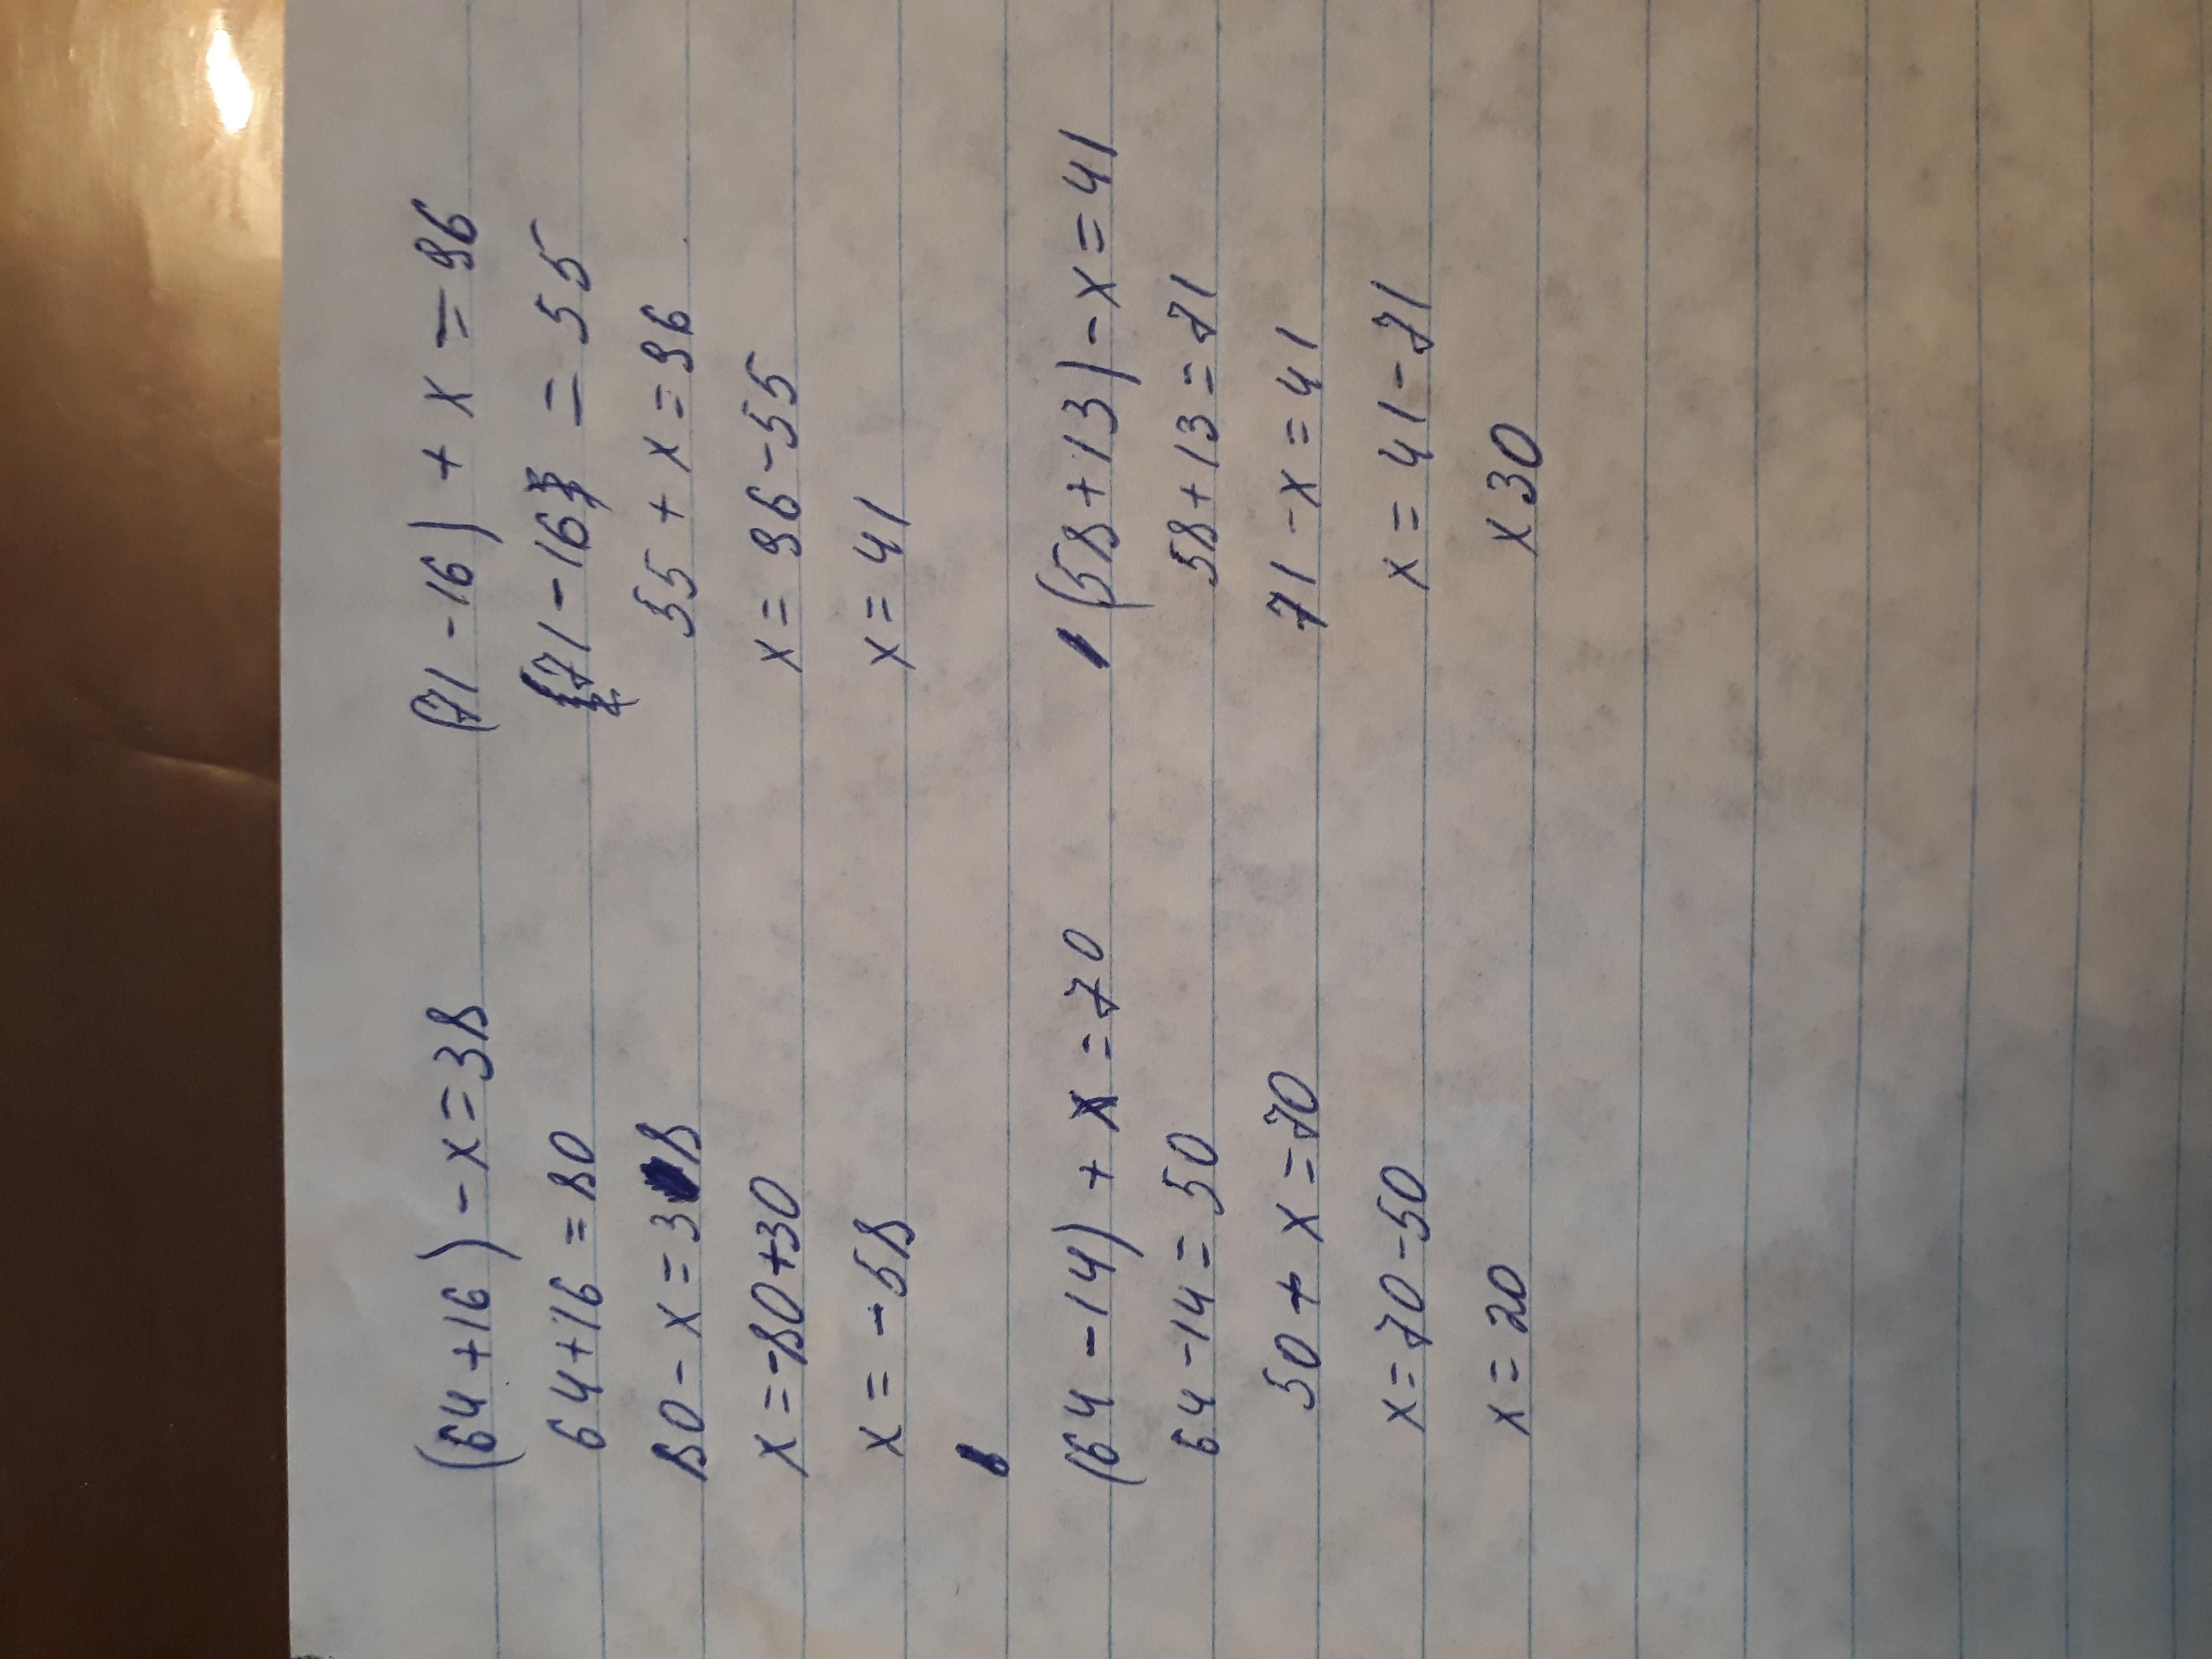 (64+16)-x=38
64+16=80
80-x=38
x=-80+30
x=-58
(71-16)+x=96
71-16=55
55+x=96
x=96-55
x=41
(64-14)+x=70
64-14=50
50+x=70
x=70-50
x=20
(58+13)-x=41
58+13=71
71-x=41
x=41-71
x30